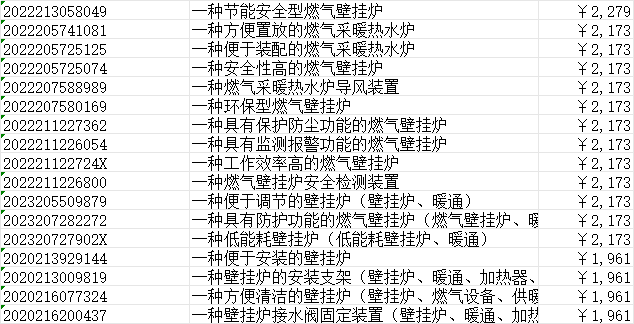 2022213058049 一种节能安全型燃气壁挂炉 ￥2,279
2022205741081 一种方便置放的燃气采暖热水炉 ￥2,173
2022205725125 一种便于装配的燃气采暖热水炉 ￥2,173
2022205725074 一种安全性高的燃气壁挂炉 ￥2,173
2022207588989 一种燃气采暖热水炉导风装置 ￥2,173
2022207580169 一种环保型燃气壁挂炉 ￥2,173
2022211227362 一种具有保护防尘功能的燃气壁挂炉 ￥2,173
2022211226054 一种具有监测报警功能的燃气壁挂炉 ￥2,173
202221122724X 一种工作效率高的燃气壁挂炉 ￥2,173
2022211226800 一种燃气壁挂炉安全检测装置 ￥2,173
2023205509879 一种便于调节的壁挂炉（壁挂炉、暖通） ￥2,173
2023207282272 一种具有防护功能的燃气壁挂炉（燃气壁挂炉、暖 ￥2,173
202320727902X 一种低能耗壁挂炉（低能耗壁挂炉、暖通） ￥2,173
2020213929144 一种便于安装的壁挂炉 ￥1,961
2020213009819 一种壁挂炉的安装支架（壁挂炉、暖通、加热器、 ￥1,961
2020216077324 一种方便清洁的壁挂炉（壁挂炉、燃气设备、供暖 ￥1,961
2020216200437 一种壁挂炉接水阀固定装置（壁挂炉、暖通、加热 ￥1,961